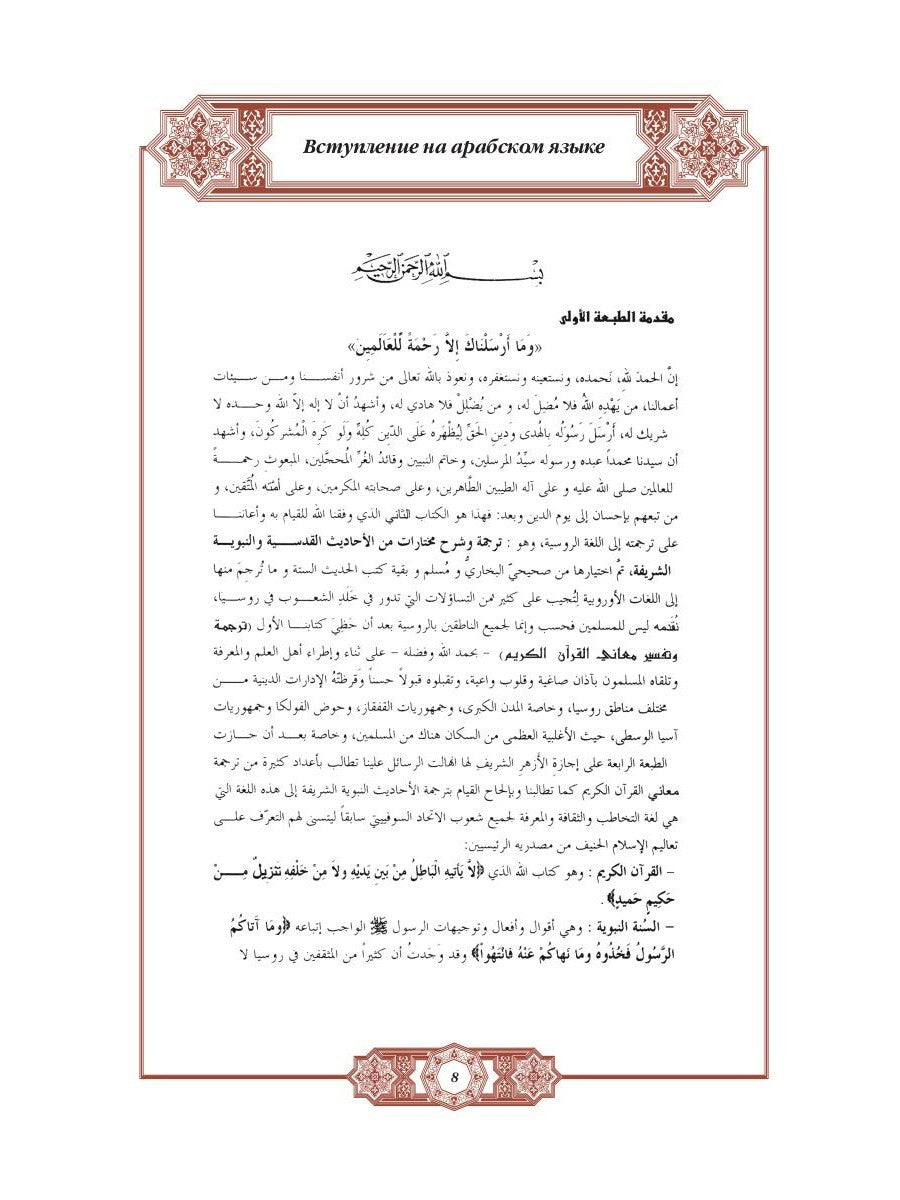 Вступление на арабском языке
بسم الله الرحمن الرحيم
مقدمة الطبعة الأولى
«وَمَا أَرْسَلْنَاكَ إِلاَّ رَحْمَةً لِّلْعَالَمِينَ»
إنَّ الحمدَ لله، نَحمده، ونستعينه ونستغفره، ونعوذ بالله تعالى من شرور أنفسنا ومن سيئات
أعمالنا، من يَهْدِهِ اللهُ فلا مُضِلَ له، و من يُضْلِلْ فلا هادي له، وأشهدُ أنْ لا إله إلاَّ الله وحده لا
شريك له، أَرْسَلَ رَسُولَه بالهُدى وَدِينِ الحَقِّ لِيُظْهِرَهُ عَلَى الدّينِ كُلِهِّ وَلَو كَرِهَ الْمُشركُونَ، وأشهد
أن سيدنا محمداً عبده ورسوله سيِّدُ المرسلين، وخاتم النبيين وقائدُ الغُرِّ الُمحجَّلين، المبعوث رحمةً
للعالمين صلى الله عليه و على آله الطيبين الطَّاهرين، وعلى صحابته المكرمين، وعلى أمَّته الْمُتَّقين، و
من تبعهم بإحسان إلى يوم الدين وبعد: فهذا هو الكتاب الثاني الذي وفقنا الله للقيام به وأعاننا
على ترجمته إلى اللغة الروسية، وهو : ترجمة وشرح مختارات من الأحاديث القدسية والنبوية
الشريفة، تمَّ اختيارها من صحيحيّ البخاريُّ و مُسلم و بقية كتب الحديث الستة و ما تُرجِمَ منها
إلى اللغات الأوروبية لتُجيب على كثير من التساؤلات التي تدور في خَلَدِ الشعوب في روسيا،
نُقَدمه ليس للمسلمين فحسب وإنما لجميع الناطقين بالروسية بعد أن حَظِيَ كتابنا الأول (ترجمة
وتفسير معاني القرآن الكريم) - بحمد الله وفضله - على ثناء وإطراء أهل العلم والمعرفة
وتلقاه المسلمون بآذان صاغية وقلوب واعية، وتقبلوه قبولاً حسناً وَقرظتْهُ الإدارات الدينية من
مختلف مناطق روسيا، وخاصة المدن الكبرى، وجمهوريات القفقاز، وحوض الفولكا وجمهوريات
آسيا الوسطى، حيث الأغلبية العظمى من السكان هناك من المسلمين، وخاصة بعد أن حازت
الطبعة الرابعة على إجازةِ الأزهرِ الشريفِ لها انهالت الرسائل علينا تطالب بأعداد كثيرة من ترجمة
معاني القرآن الكريم كما تطالبنا وبإلحاح القيام بترجمة الأحاديث النبوية الشريفة إلى هذه اللغة التي
هي لغة التخاطب والثقافة والمعرفة لجميع شعوب الاتحاد السوفييتي سابقاً ليتسنى لهم التعرّف على
تعاليم الإسلام الحنيف من مصدريه الرئيسيين:
– القرآن الكريم : وهو كتاب الله الذي ﴿لاَّ يَأتيهِ الْبَاطِلُ مِنْ بَينِ يَديْهِ ولاَ مِنْ خَلْفِهِ تَنْزِيلٌ مِنْ
حَكِيمٍ حَميدٍ﴾ .
– السُنة النبوية : وهي أقوال وأفعال وتوجيهات الرسول ﷺ الواجب إتباعه ﴿وَما آتَاكُمُ
الرَّسُولُ فَخُذُوهُ ومَا نَهاكُمْ عَنْهُ فانْتَهُواْ﴾ وقد وَجَدتُ أن كثيراً من المثقفين في روسيا لا
8